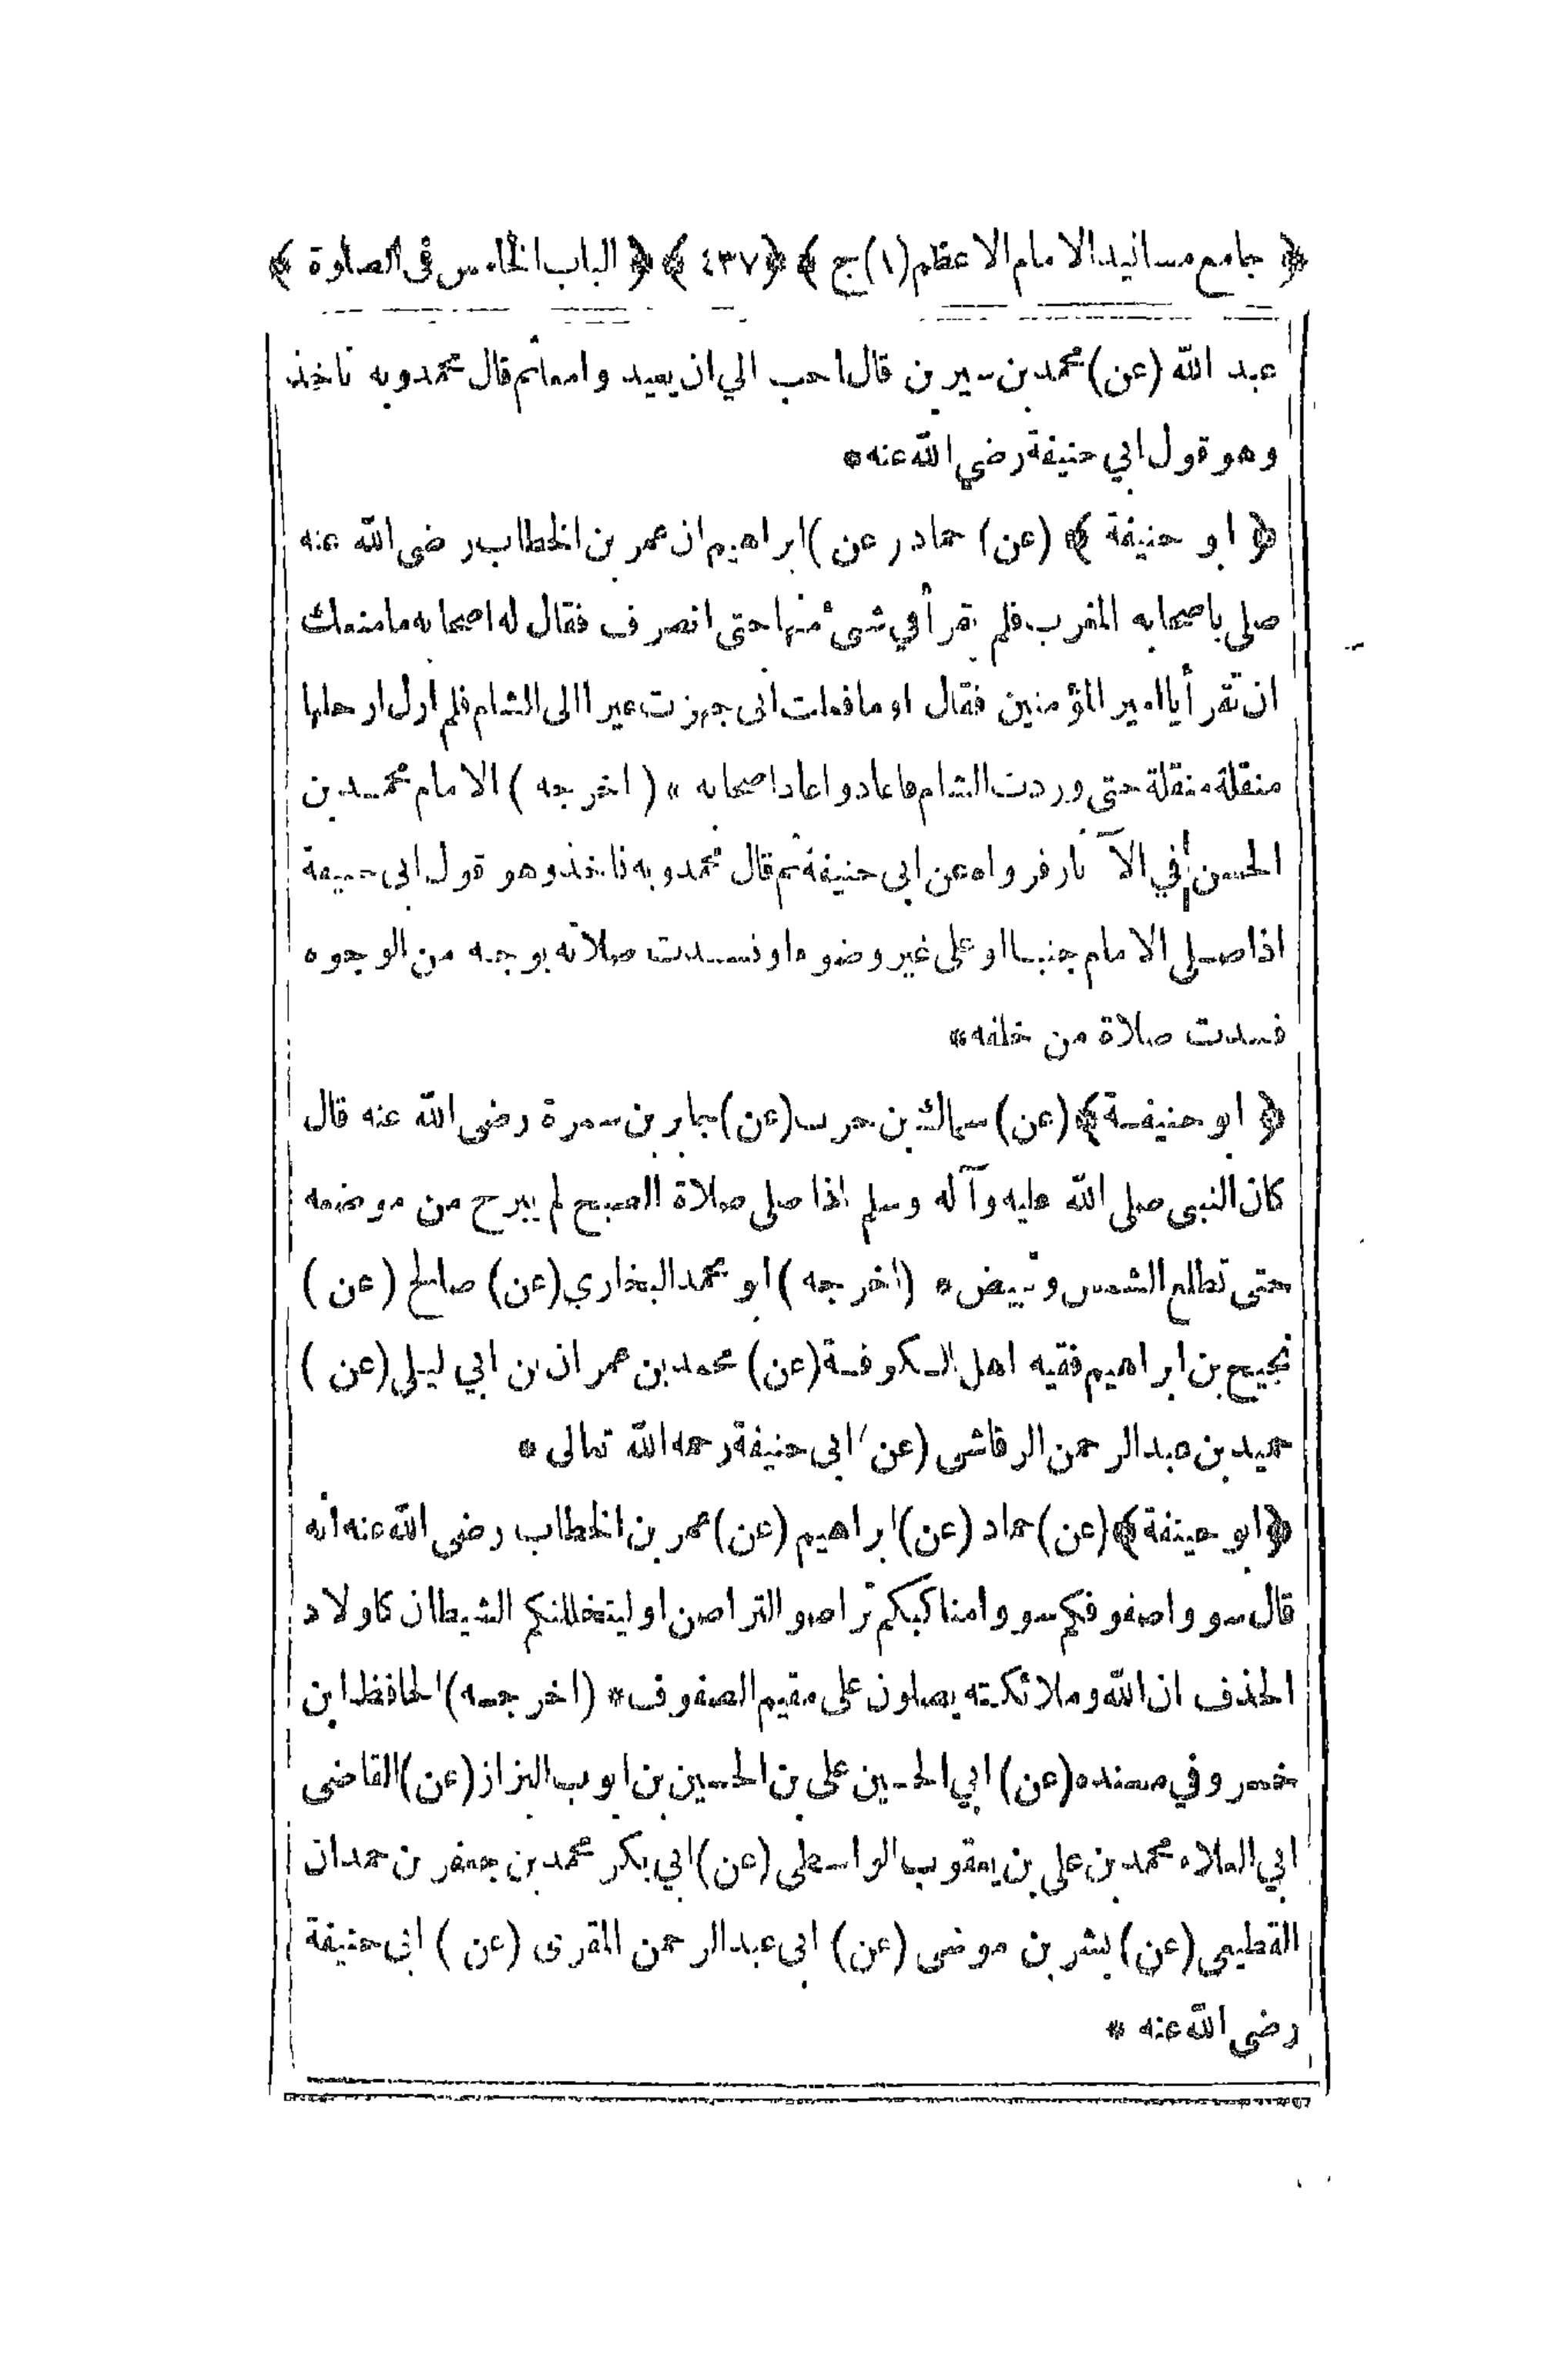 ﴿ جامع مسانيد الامام الاعظم (١) ج ﴾ ﴿ ٤٣٧ ﴾ ﴿ الباب الخامس فى الصلوة ﴾
عبد الله (عن) محمد بن سيرين قال احب الي ان يعيد وا معا ثم قال محمد وبه ناخذ
وهو قول ابي حنيفة رضي الله عنه *
﴿ ابو حنيفة ﴾ (عن) حماد (عن) ابراهيم ان عمر بن الخطاب رضى الله عنه
صلى باصحابه المغرب فلم يقرأ في شىء منها حتى انصرف فقال له اصحابه ما منعك
ان تقرأ يا امير المؤمنين فقال او ما فعلت انى جهزت عيرا الى الشام فلم ازل ارحلها
منقلة منقلة حتى وردت الشام فاعاد واعاد اصحابه * (اخرجه) الامام محمد بن
الحسن في الآثار فرواه عن ابى حنيفة ثم قال محمد وبه ناخذ وهو قول ابى حنيفة
اذا صلى الامام جنبا او على غير وضوء او فسدت صلاته بوجه من الوجوه
فسدت صلاة من خلفه *
﴿ ابو حنيفة ﴾ (عن) سماك بن حرب (عن) جابر بن سمرة رضى الله عنه قال
كان النبى صلى الله عليه وآله وسلم اذا صلى صلاة الصبح لم يبرح من موضعه
حتى تطلع الشمس وتبيض * (اخرجه) ابو محمد البخاري (عن) صالح (عن)
نجيح بن ابراهيم فقيه اهل الكوفة (عن) محمد بن عمران بن ابي ليلى (عن)
حميد بن عبد الرحمن الرقاشى (عن) ابى حنيفة رحمه الله تعالى *
﴿ ابو حنيفة ﴾ (عن) حماد (عن) ابراهيم (عن) عمر بن الخطاب رضى الله عنه انه
قال سووا صفوفكم سووا مناكبكم تراصوا لتراصن او ليتخللنكم الشيطان كاولاد
الحذف ان الله وملائكته يصلون على مقيم الصفوف * (اخرجه) الحافظ ابن
خسرو في مسنده (عن) ابي الحسين على بن الحسين بن ايوب البزاز (عن) القاضى
ابي العلاء محمد بن على بن يعقوب الواسطى (عن) ابي بكر محمد بن جعفر بن حمدان
القطيعى (عن) بشر بن موسى (عن) ابى عبد الرحمن المقرى (عن) ابى حنيفة
رضى الله عنه *